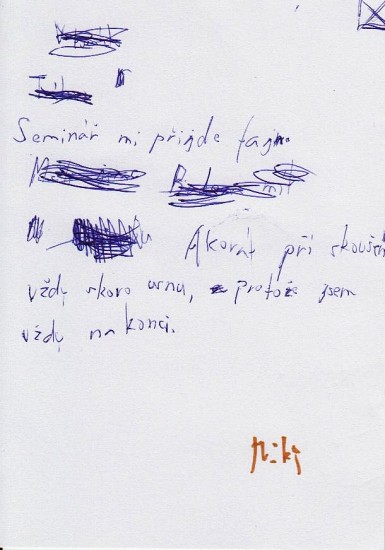 Seminář mi přijde fajn.
Akorát při zkoušení
vždy skoro usnu, protože jsem
vždy na konci.